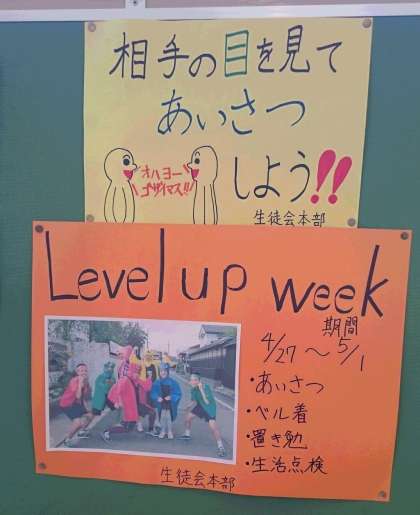 相手の目を見て
あいさつ
しよう!!
オハヨー
ゴザイマス!!
生徒会本部
Level up week
期間
4/27～5/1
・あいさつ
・ベル着
・置き勉
・生活点検
生徒会本部